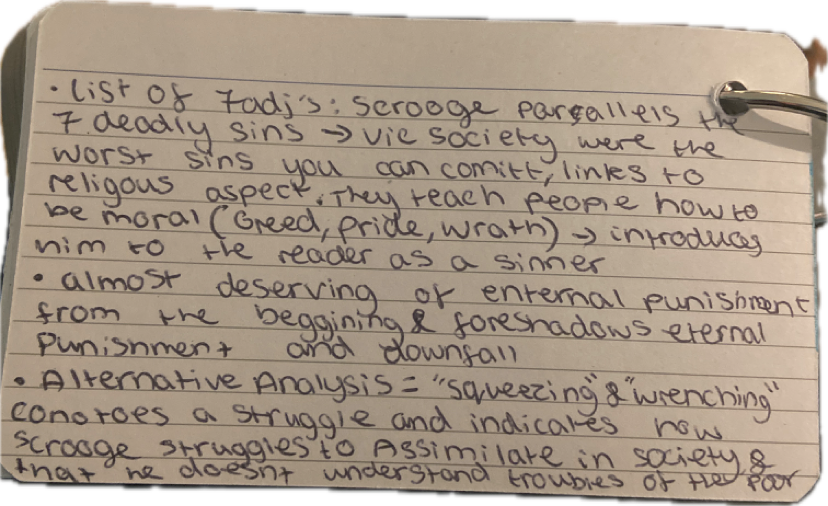 · List of 7adj's: Scrooge parallels the
7 deadly sins → vic society were the
worst sins you can comitt, links to
religous aspect. They teach people how to
be moral (Greed, pride, wrath) → introduces
him to the reader as a sinner
· almost deserving of enternal punishment
from the beggining & foreshadows eternal
punishment and downfall
· Alternative Analysis = "squeezing" & "wrenching"
conotoes a struggle and indicates how
scrooge struggles to Assimilate in society &
that he doesnt understand troubles of the poor